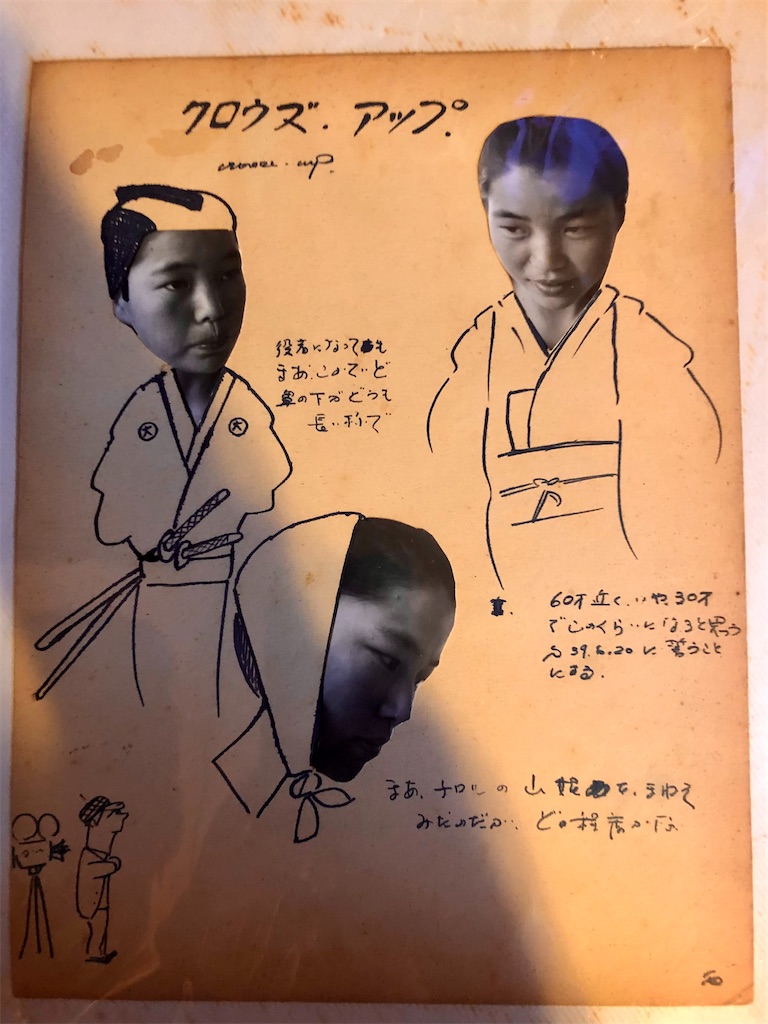 クロウズ.アップ.
up.
役者になっても
まあ、こんでいど
鼻の下がどうも
長い称で
大
大
60才近く、いや、30才
でこのくらいになると思う
39.6.20に誓うこと
にする.
まあ、チロルの山娘を、まねて
みたのだが、どの程度かな